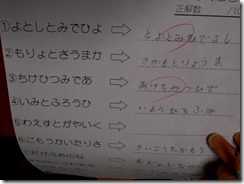 正解数
①よとしとみでひよ ⇨ とよとみひでよし
②もりょとさうまか ⇨ さかもとりょうま
③ちけひつみであ ⇨ あけちみつひで
④いみとふろうひ ⇨ いとうひろふみ
⑤わえすとがやいく ⇨
⑥ごもうかいたりさ ⇨ さいごうたかもり